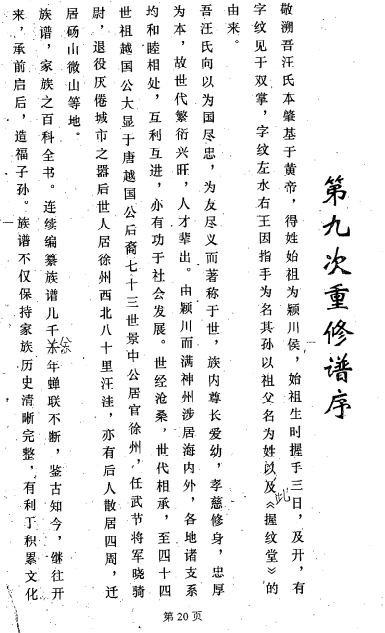 第九次重修谱序
敬溯吾汪氏本肇基于黄帝，得姓始祖为颍川侯，始祖生时握手三日，及开，有
字纹见于双掌，字纹左水右王因指手为名其孙以祖父名为姓以及《握纹堂》的
此
由来。
吾汪氏向以为国尽忠，为友尽义而著称于世，族内尊长爱幼，孝慈修身，忠厚
为本，故世代繁衍兴旺，人才辈出。由颖川而满神州涉居海内外，各地诸支系
均和睦相处，互利互进，亦有功于社会发展。世经沧桑，世代相承，至四十四
世祖越国公大显于唐越国公后裔七十三世景中公居官徐州，任武节将军晓骑
尉，退役厌倦城市之器后世人居徐州西北八十里汪洼，亦有后人散居四周，迁
居砀山微山等地。
族谱，家族之百科全书。连续编纂族谱几千余年蝉联不断，鉴古知今，继往开
来，承前启后，造福子孙。族谱不仅保持家族历史清晰完整，有利于积累文化
第 20 页